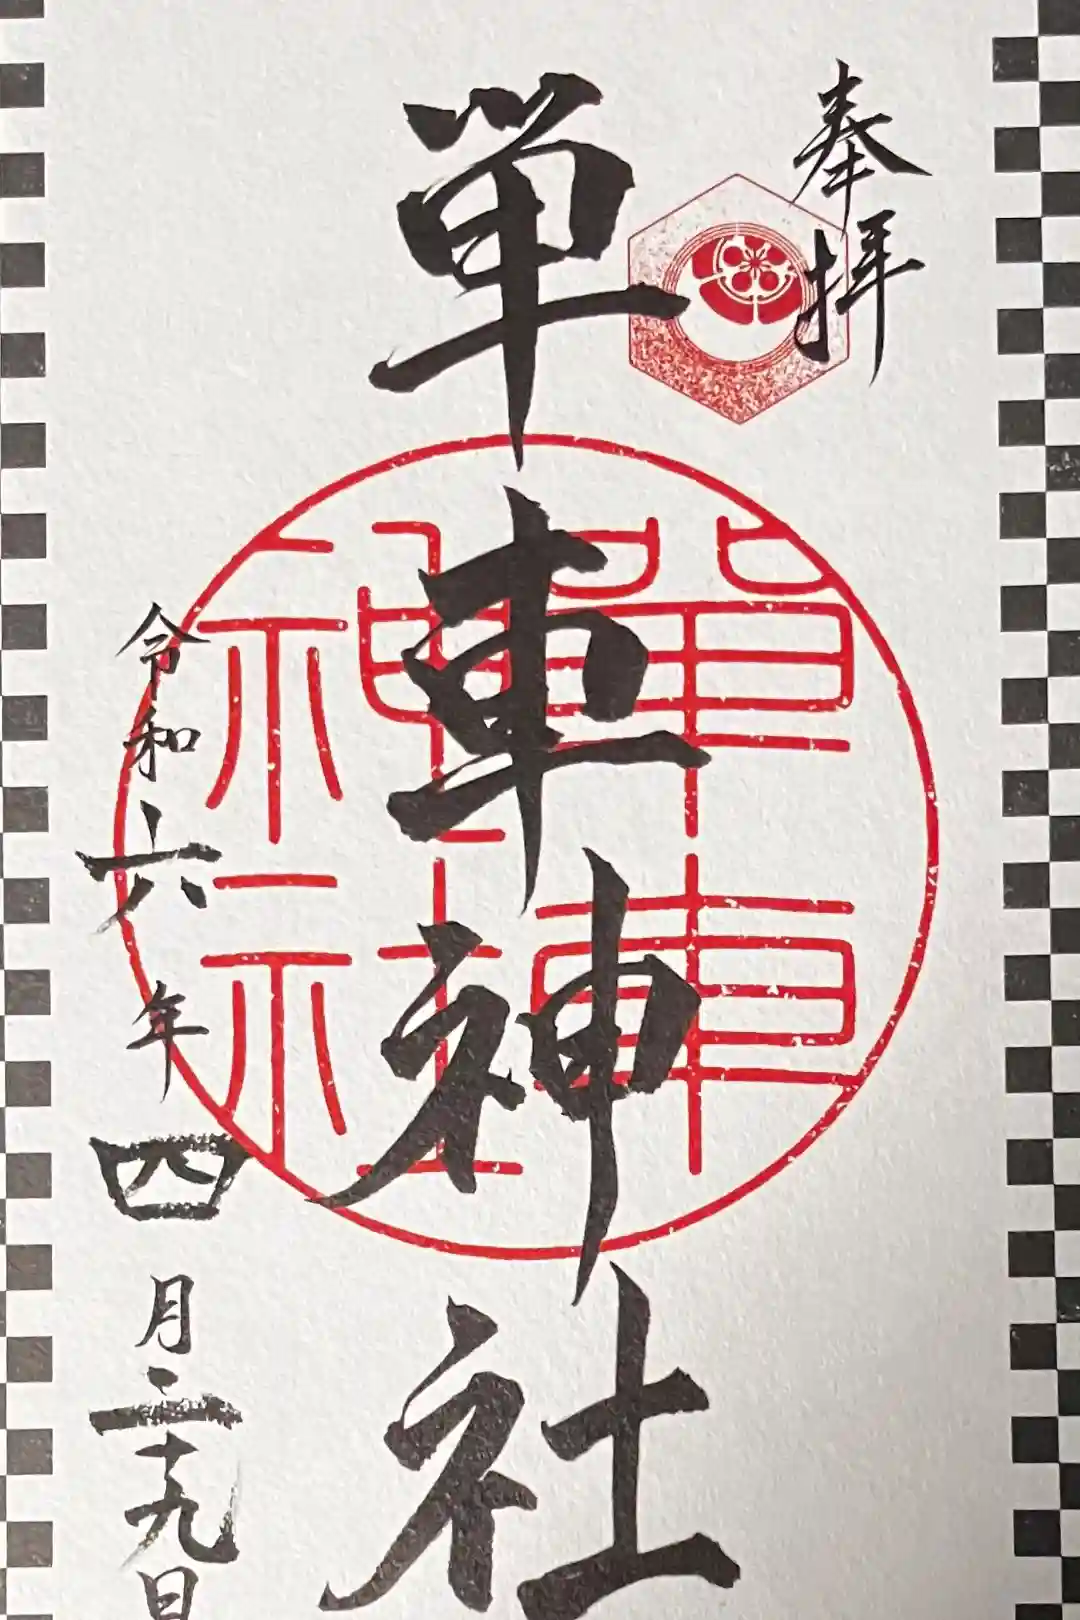 奉拝
單車神社
單車神社
令和六年四月二十九日